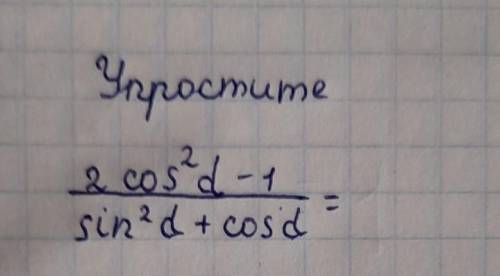 Упростите
2 cos²α - 1
sin²α + cosα =